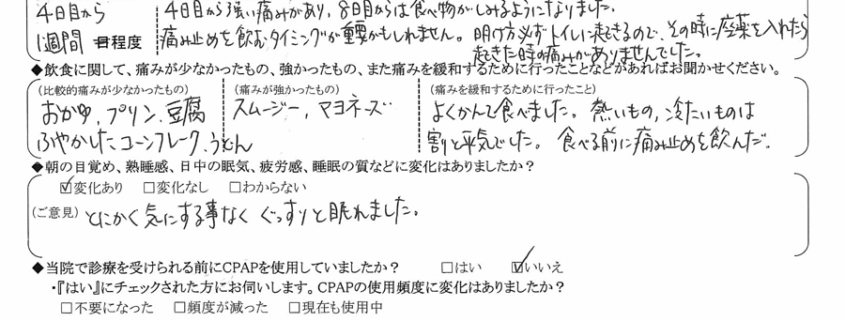 4日目から 4日目から強い痛みがあり、8日目からは食べ物がしみるようになりました。
1週間 日程度 痛み止めを飲むタイミングが重要かもしれません。明け方必ずトイレに起きるので、その時に座薬を入れたら
起きた時の痛みがありませんでした。
◆飲食に関して、痛みが少なかったもの、強かったもの、また痛みを緩和するために行ったことなどがあればお聞かせください。
(比較的痛みが少なかったもの) (痛みが強かったもの) (痛みを緩和するために行ったこと)
おかゆ、プリン、豆腐 スムージー、マヨネーズ よくかんで食べました。熱いもの、冷たいものは
ふやかしたコーンフレーク、うどん 割と平気でした。食べる前に痛み止めを飲んだ。
◆朝の目覚め、熟睡感、日中の眠気、疲労感、睡眠の質などに変化はありましたか？
☑変化あり □変化なし □わからない
(ご意見) とにかく気にする事なくぐっすりと眠れました。
◆当院で診療を受けられる前にCPAPを使用していましたか？ □はい ☑いいえ
・『はい』にチェックされた方にお伺いします。CPAPの使用頻度に変化はありましたか？
□不要になった □頻度が減った □現在も使用中